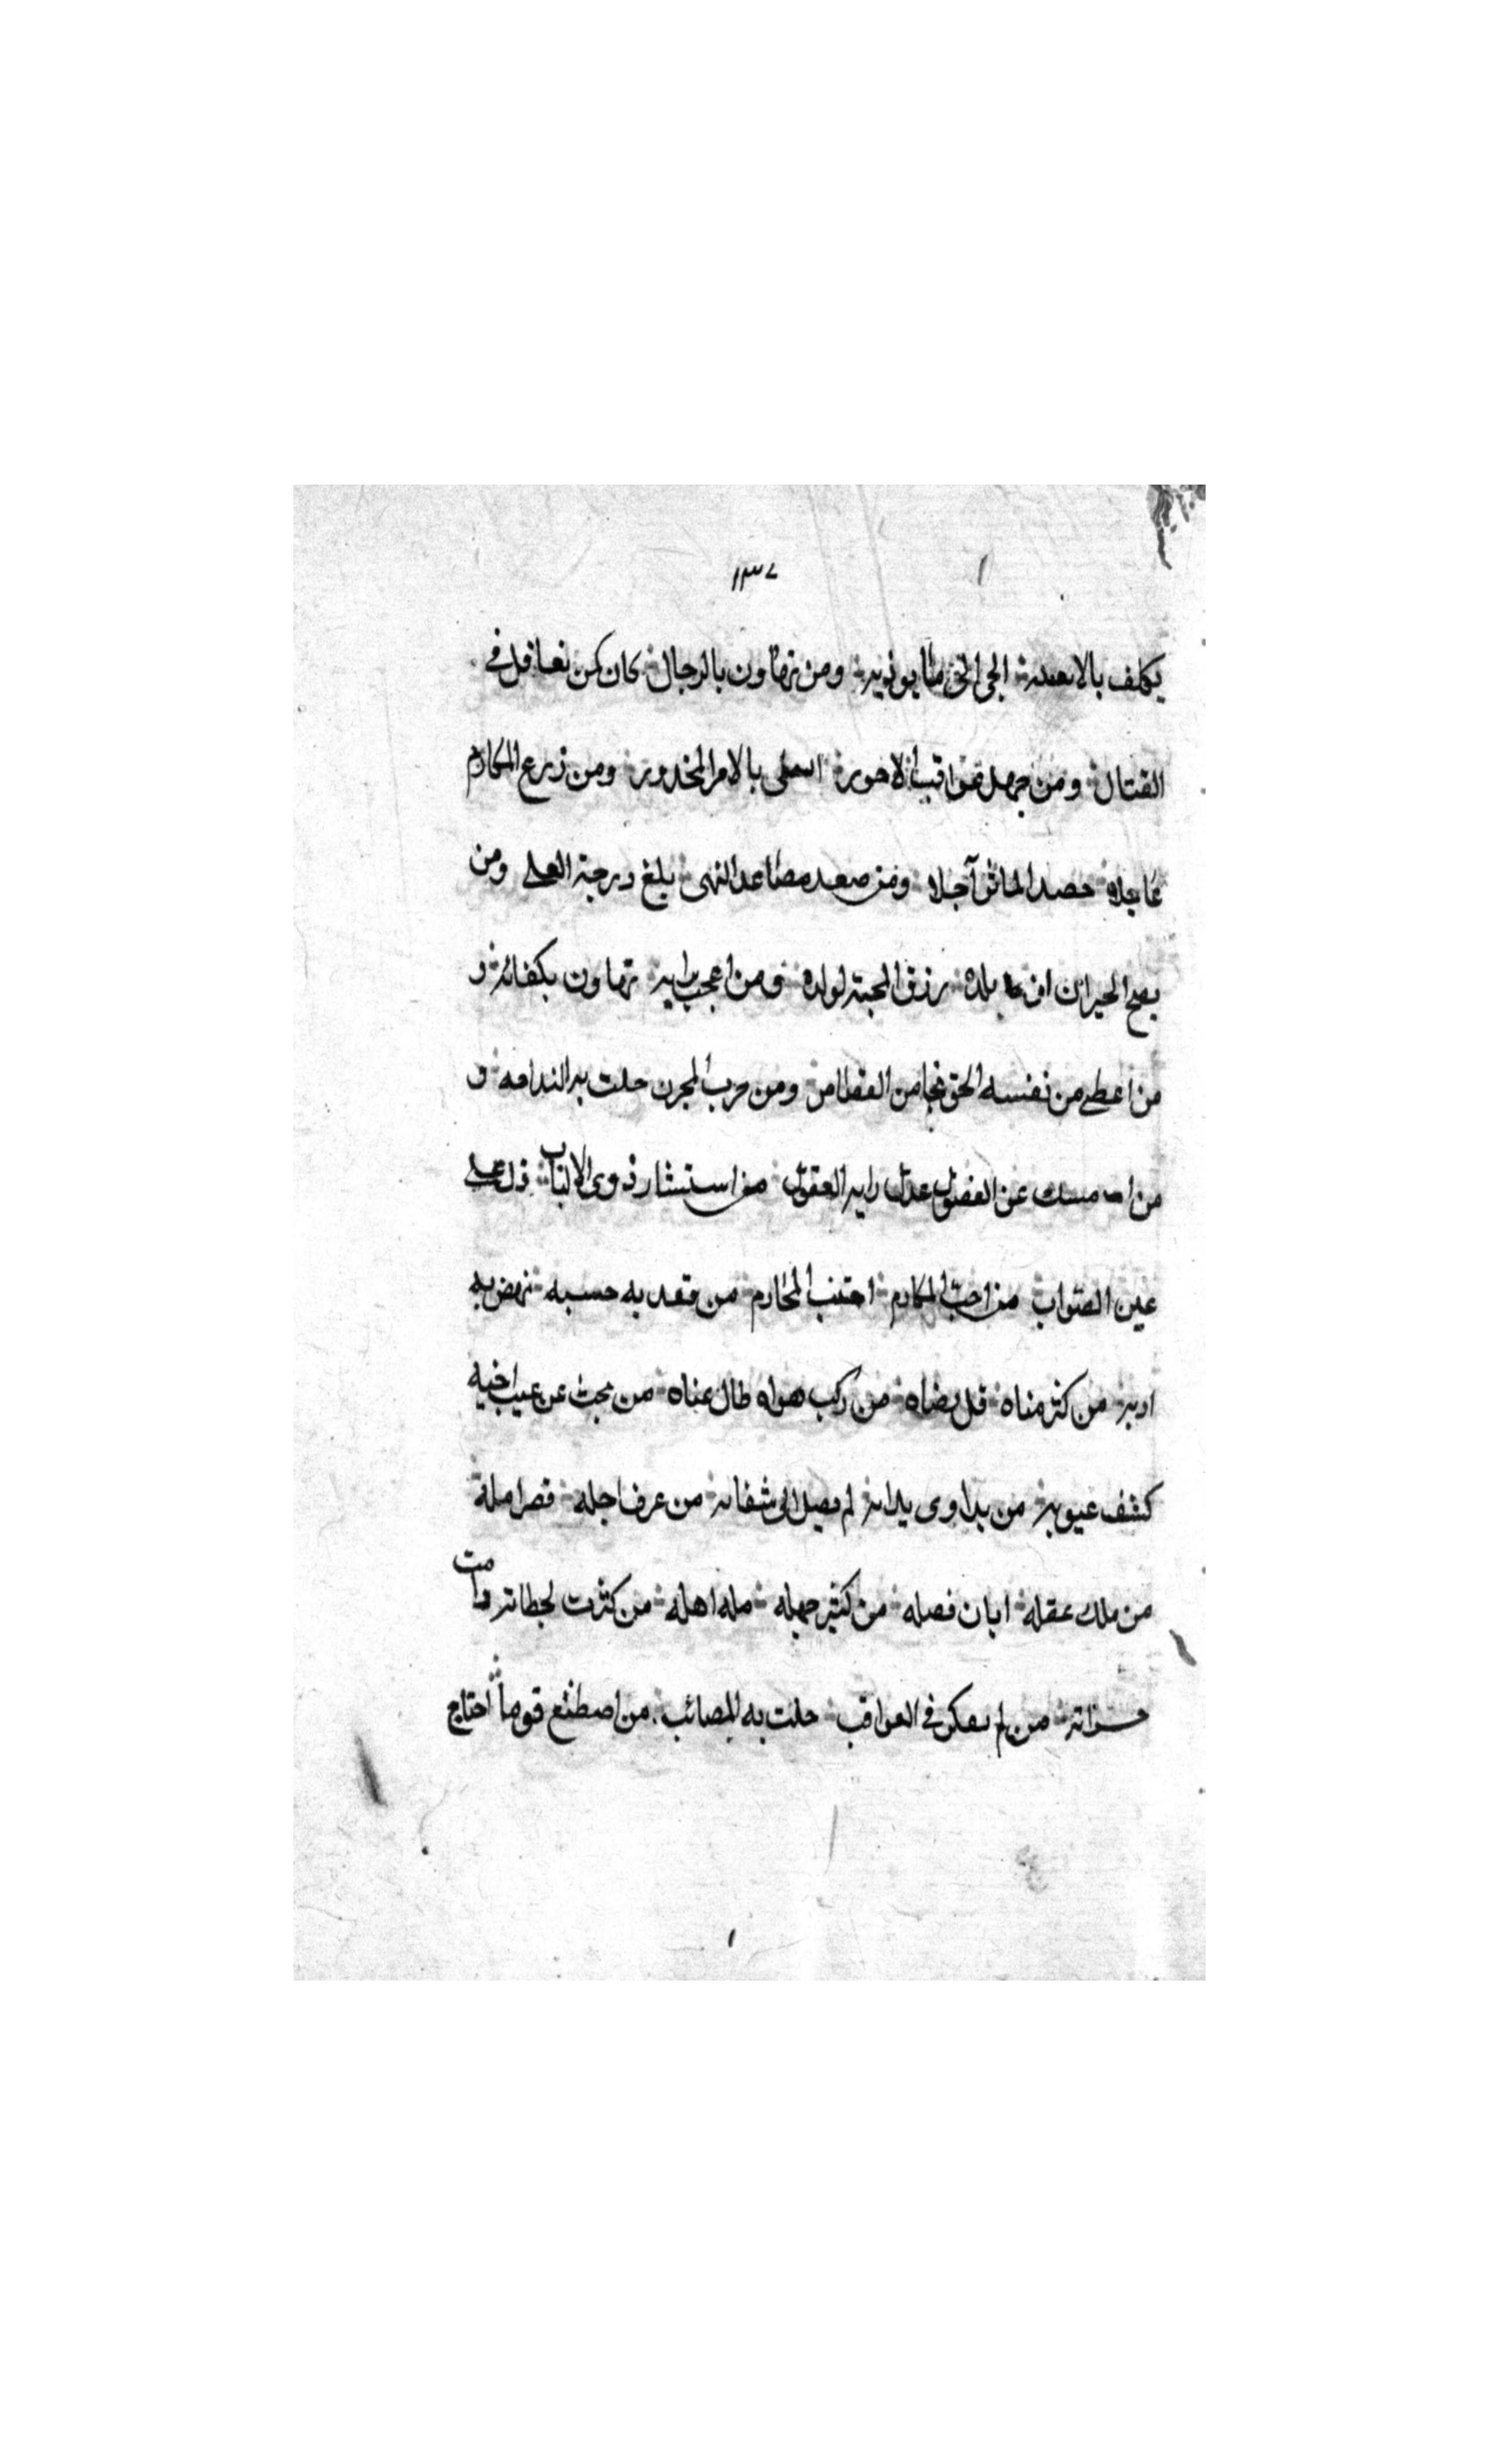 ١٣٧
يكلف بالا يعنيه الجى الى ما يوذيه ومن تهاون بالرجال كان كمن تغافل فى
القتال ومن جهل عواقب الامور ابتلى بالامر المحذور ومن زرع المكارم
عاجلا حصد الماثر آجلا ومن صعد مصاعد النهى بلغ درجة العلى ومن
الجيران رزق المحبة لولده ومن اعجب برايه تهاون بكفائه و
من اعطى من نفسه الحق نجا من ومن حلت به الندامه و
من ا مسك عن الفضول عدلت رايه العقول من استشار ذوى الالباب دل على
عين الصواب من احب المكارم اجتنب المحارم من قعد به حسبه نهض به
ادبه من كثر مناه قل رضاه من ركب هواه طال عناه من بحث عن عيب اخيه
كشف عيوبه من بدائه لم يصل الى شفائه من عرف اجله قصر امله
من ملك عقله ابان فضله من كثير جهله مله اهله من كثرت لحظاته دامت
حسراته من لم يفكر فى العواقب حلت به المصائب من اصطنع قوما احتاج